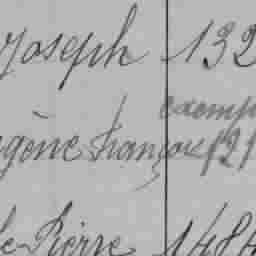 Joseph 132
exemp
gène François 121
Pierre 1484